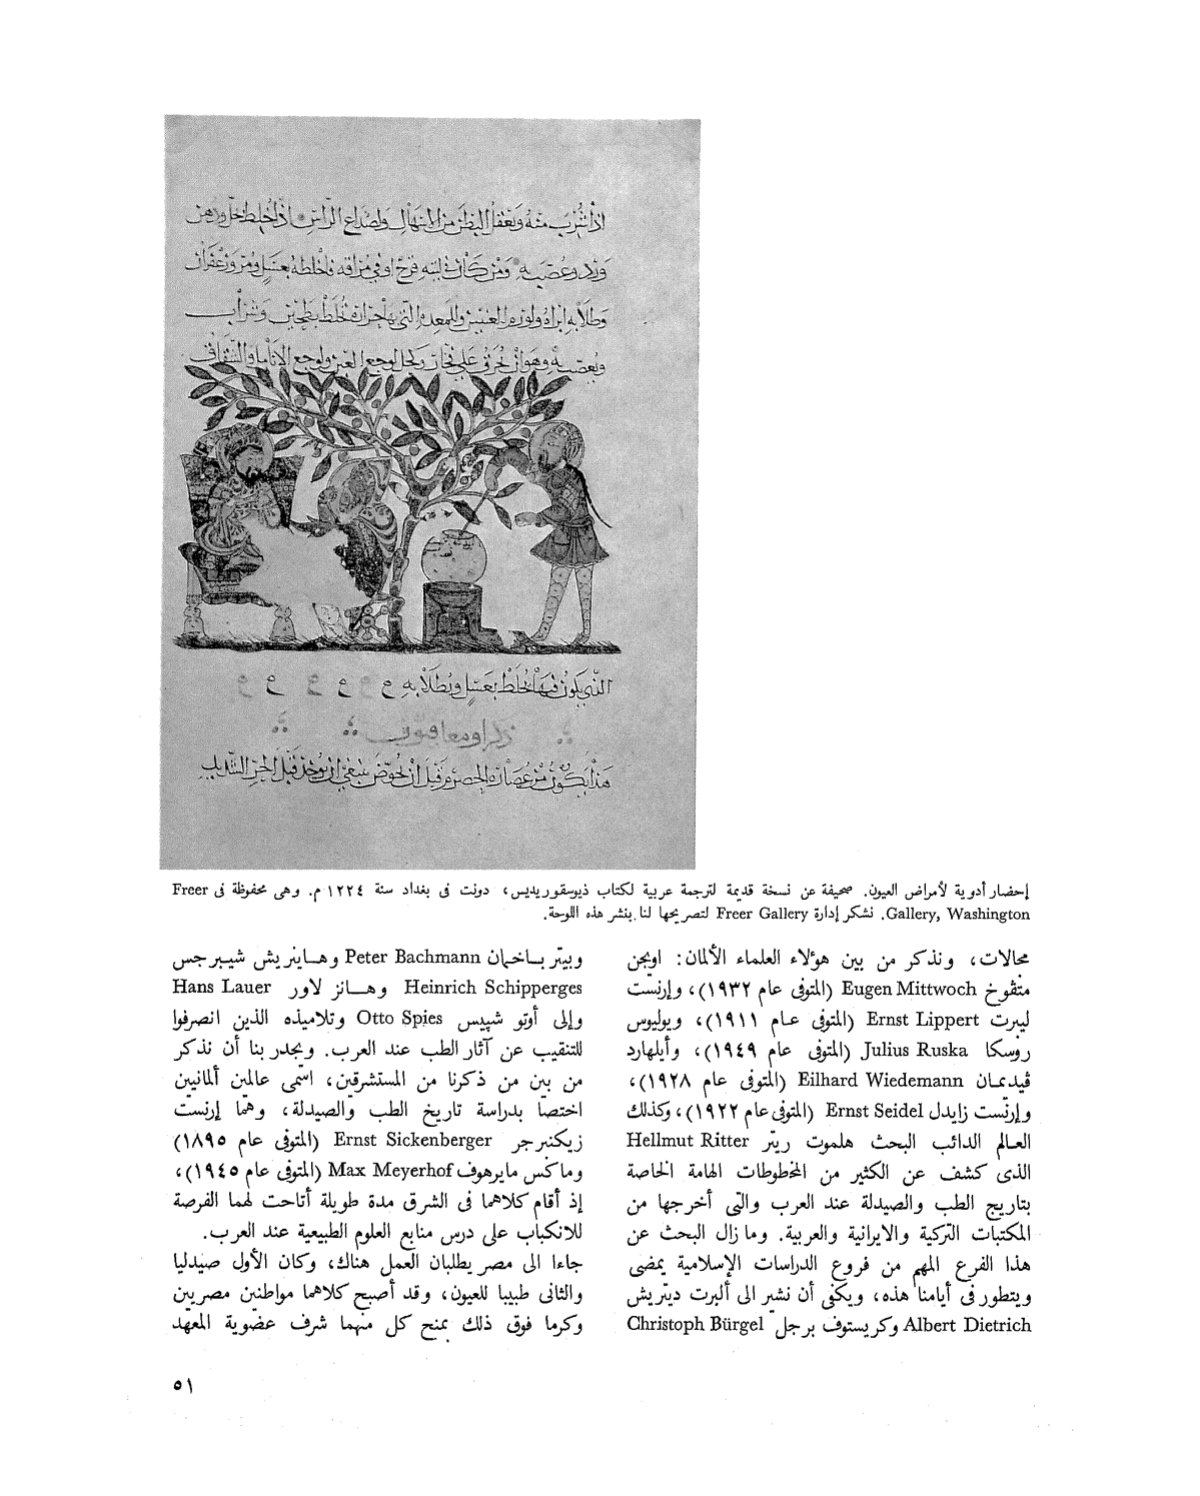 اذا شرب منه ويعقل البطن من الاسهال ولصداع الراس اذا خلط بخل ودهن
ورد وعصب به ومن كان في لثته قرح او في مراقه فاخلطه بعسل ومر وزعفران
وطلا به ابراه ولورم العينين وللمعدة التي بها حرارة تخلط بطحين وشراب
ويعصب به وهو ان يحرق على فخار وكحل لوجع العين ولوجع
التي يكون فيها يخلط بعسل ويطلا به
ذكر اومفاقيون
هذا يكون من عصارة الحصرم قبل ان يحمض ينبغي ان يوخذ قبل الحر الشديد
إحضار أدوية لأمراض العيون. صحيفة عن نسخة قديمة لترجمة عربية لكتاب ذيوسقوريديس، دونت فى بغداد سنة ١٢٢٤ م. وهى محفوظة فى Freer
Gallery, Washington. نشكر إدارة Freer Gallery لتصريحها لنا بنشر هذه اللوحة.
مجالات، ونذكر من بين هؤلاء العلماء الألمان: اويجن
متڤوخ Eugen Mittwoch (المتوفى عام ١٩٣٢)، وإرنست
ليبرت Ernst Lippert (المتوفى عام ١٩١١)، ويوليوس
روسكا Julius Ruska (المتوفى عام ١٩٤٩)، وأيلهارد
ڤيدمان Eilhard Wiedemann (المتوفى عام ١٩٢٨)،
وإرنست زايدل Ernst Seidel (المتوفى عام ١٩٢٢)، وكذلك
العالم الدائب البحث هلموت ريتر Hellmut Ritter
الذى كشف عن الكثير من المخطوطات الهامة الخاصة
بتاريج الطب والصيدلة عند العرب والتى أخرجها من
المكتبات التركية والايرانية والعربية. وما زال البحث عن
هذا الفرع المهم من فروع الدراسات الإسلامية يمضى
ويتطور فى أيامنا هذه، ويكفى أن نشير الى ألبرت ديتريش
Albert Dietrich وكريستوف برجل Christoph Bürgel
وبيتر باخمان Peter Bachmann وهاينريش شيبرجس
Heinrich Schipperges وهانز لاور Hans Lauer
وإلى أوتو شپيس Otto Spies وتلاميذه الذين انصرفوا
للتنقيب عن آثار الطب عند العرب. ويجدر بنا أن نذكر
من بين من ذكرنا من المستشرقين، اسمى عالمين ألمانيين
اختصا بدراسة تاريخ الطب والصيدلة، وهما إرنست
زيكنبرجر Ernst Sickenberger (المتوفى عام ١٨٩٥)
وماكس مايرهوف Max Meyerhof (المتوفى عام ١٩٤٥)،
إذ أقام كلاهما فى الشرق مدة طويلة أتاحت لهما الفرصة
للانكباب على درس منابع العلوم الطبيعية عند العرب.
جاءا الى مصر يطلبان العمل هناك، وكان الأول صيدليا
والثانى طبيبا للعيون، وقد أصبح كلاهما مواطنين مصريين
وكرما فوق ذلك بمنح كل منهما شرف عضوية المعهد
٥١